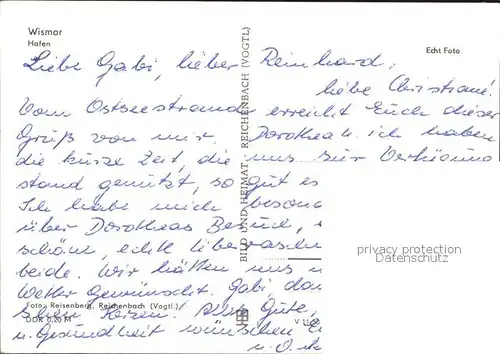 Wismar
Hafen
Echt Foto
Liebe Gabi, lieber Reinhard,
liebe Christiane!
Vom Ostseestrand erreicht Euch dieser
Gruß von mir. Dorothea u. ich haben
die kurze Zeit, die uns zur Verfügung
stand genutzt, so gut es
Ich habe mich beson
über Dorotheas Besuch,
schöne, echte Überraschu
beide. Wir hätten uns
Wetter gewünscht. Gabi, dan
Herzen! Alles Gute,
u. Gesundheit wünschen
u. O.
BILD UND HEIMAT REICHENBACH (VOGTL)
privacy protection
Datenschutz
Foto: Reisenberg, Reichenbach (Vogtl.)
DDR 0,20 M